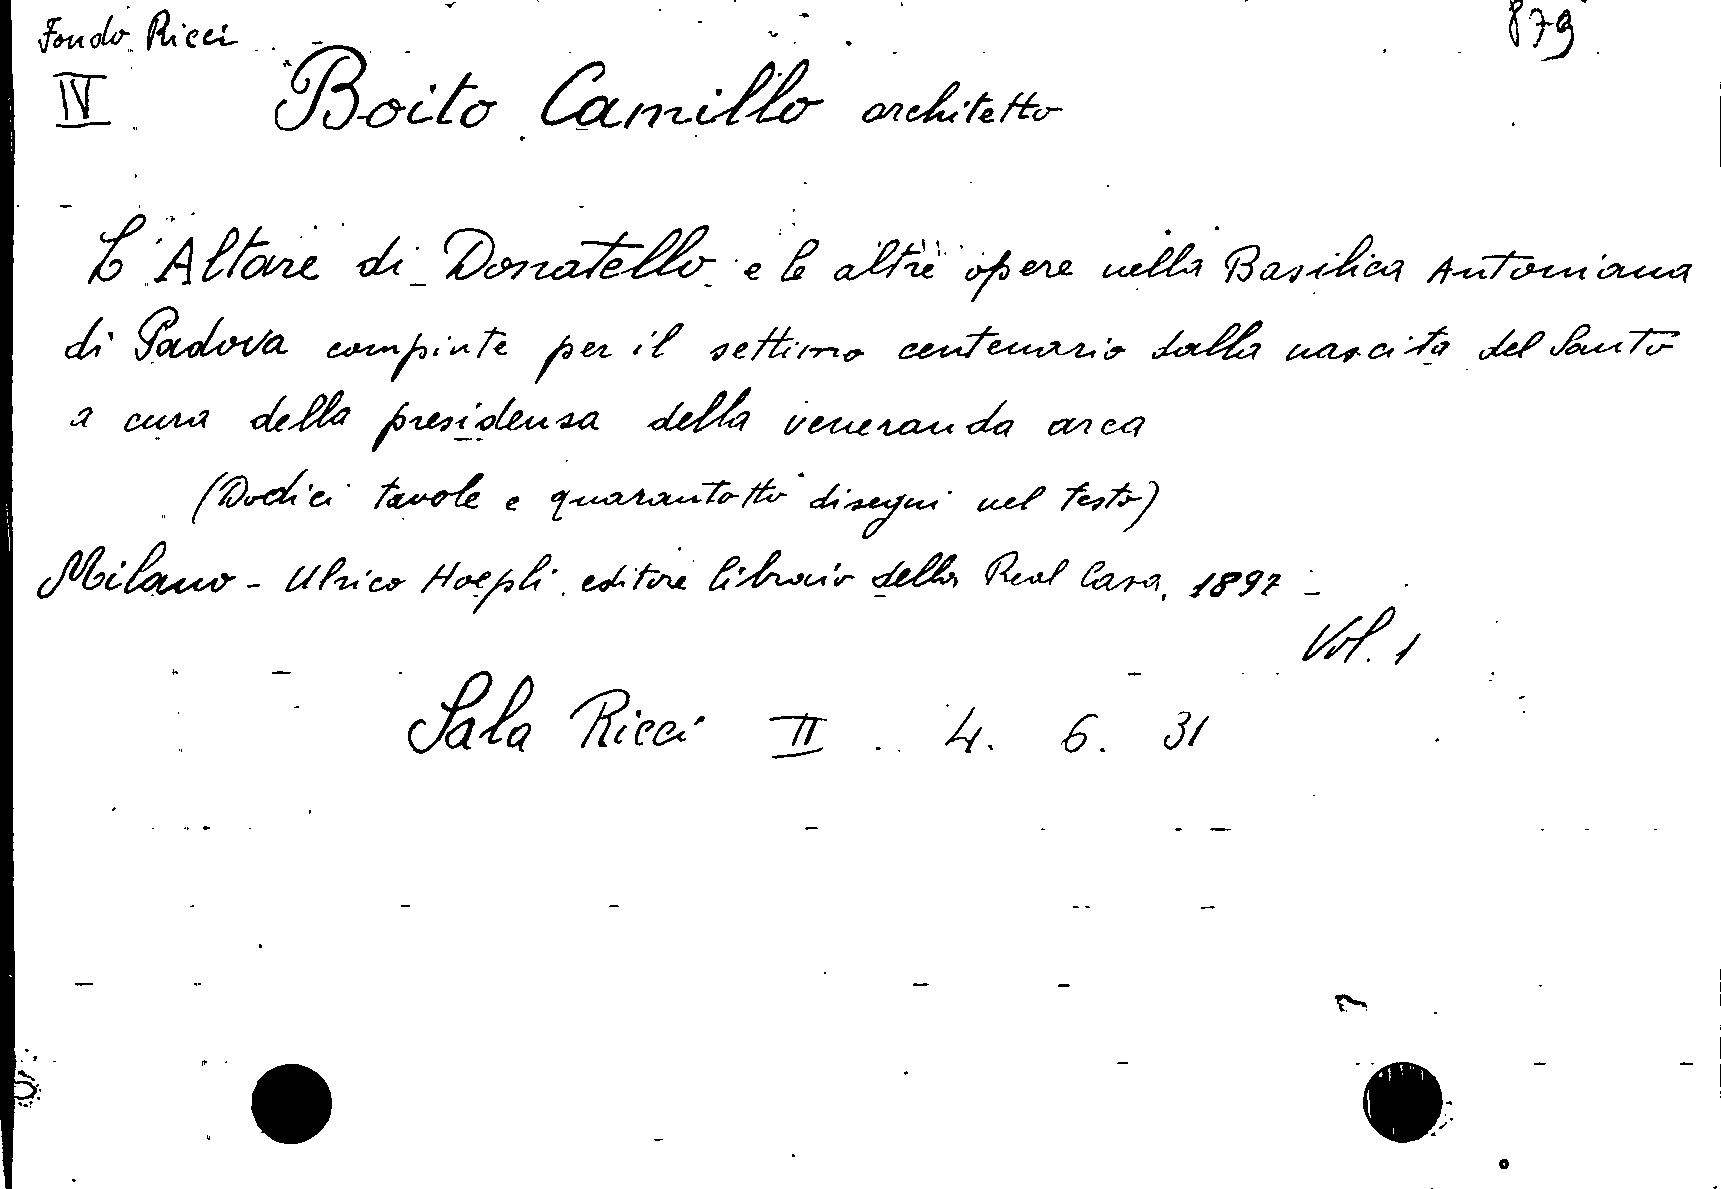 Fondo Ricci 879
IV Boito Camillo architetto
L'Altare di Donatello e le altre opere nella Basilica Antoniana
di Padova compiute per il settimo centenario dalla nascita del Santo
a cura della presidenza della veneranda arca
(Dodici tavole e quarantotto disegni nel testo)
Milano - Ulrico Hoepli editore libraio della Real Casa, 1897 -
Vol. 1
Sala Ricci II . 4. 6. 31